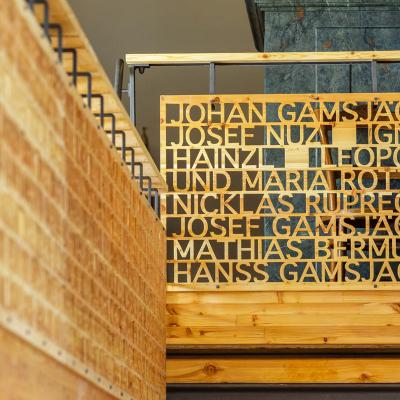 JOHAN GAMSJAG
JOSEF NUZ IGN
HAINZL LEOPO
UND MARIA ROT
NICKLAS RUPREC
JOSEF GAMSJAG
MATHIAS BERMU
HANSS GAMSJAG